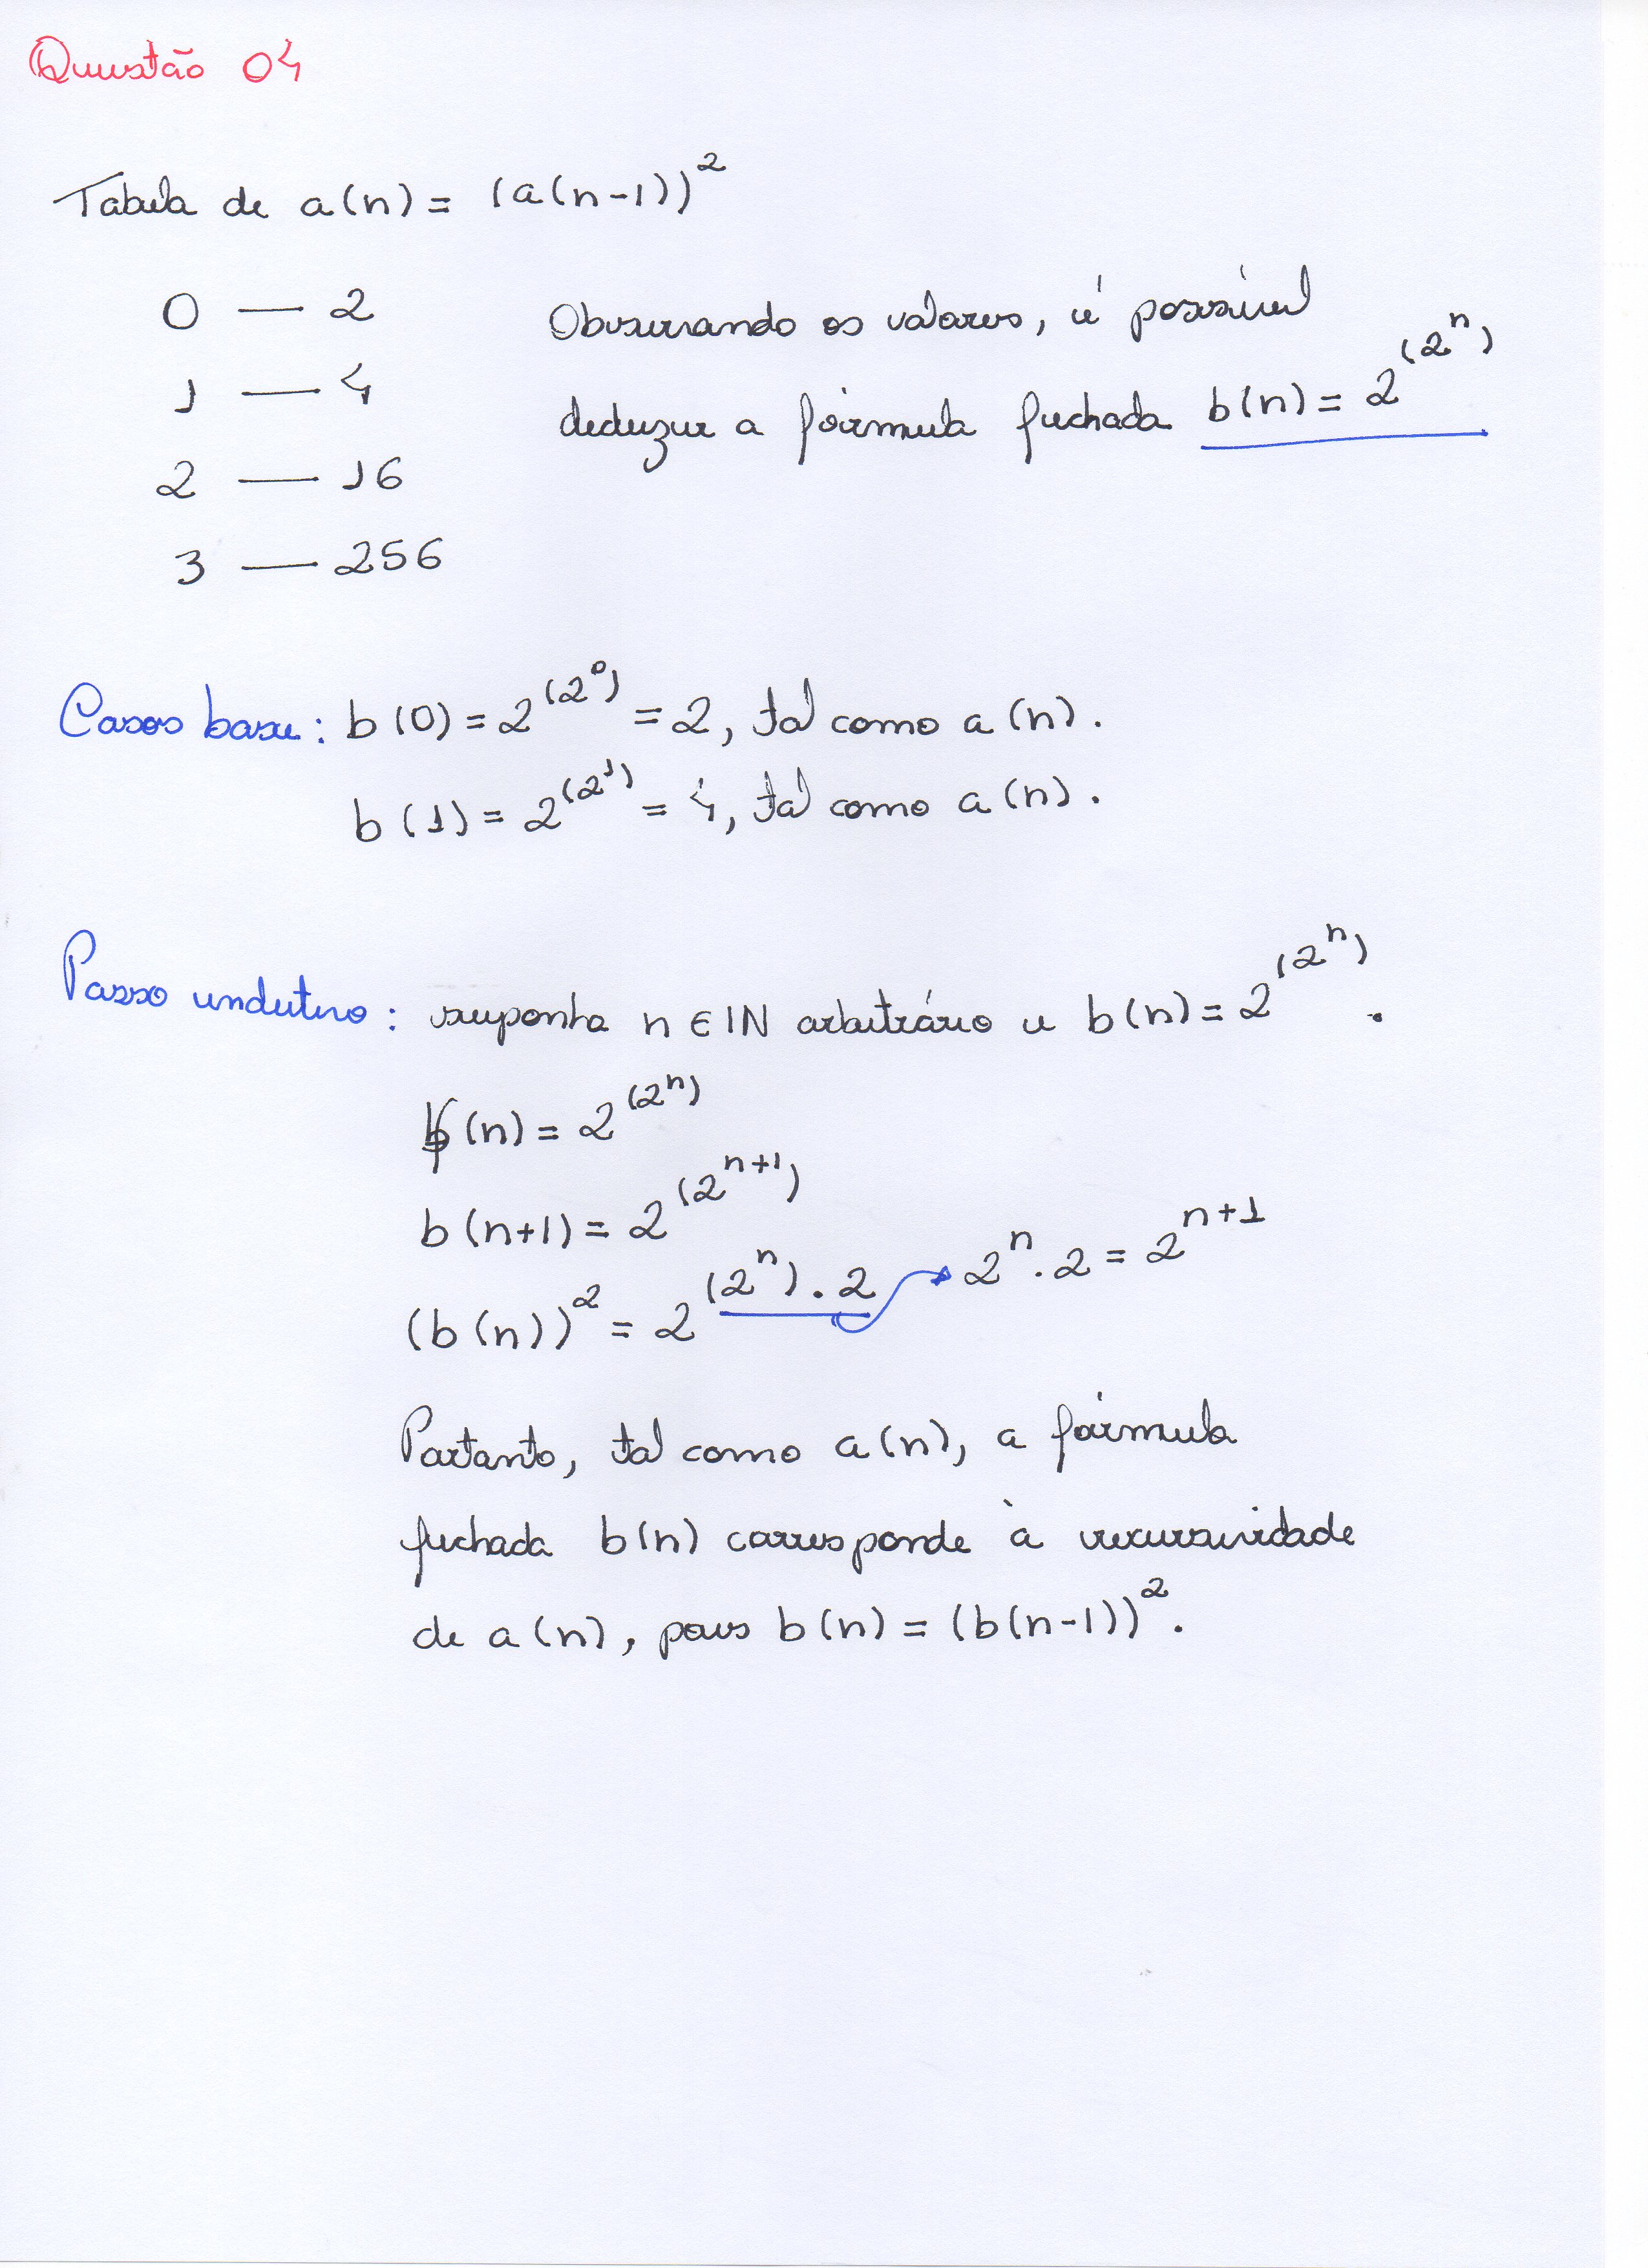 Questão 04
Tabela de a(n) = (a(n-1))²
0 — 2
1 — 4
2 — 16
3 — 256
Observando os valores, é possível
deduzir a fórmula fechada b(n) = 2^(2^n)
Casos base: b(0) = 2^(2^0) = 2, tal como a(n).
b(1) = 2^(2^1) = 4, tal como a(n).
Passo indutivo: suponha n ∈ IN arbitrário e b(n) = 2^(2^n).
b(n) = 2^(2^n)
b(n+1) = 2^(2^(n+1))
(b(n))² = 2^((2^n) . 2) → 2^n . 2 = 2^(n+1)
Portanto, tal como a(n), a fórmula
fechada b(n) corresponde à recursividade
de a(n), pois b(n) = (b(n-1))².